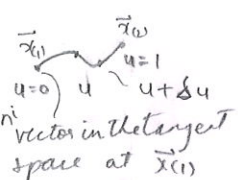 x⃗(1) x⃗(2)
u=0 u u=1
u+δu
nⁱ
vector in the tangent
space at x⃗(1)